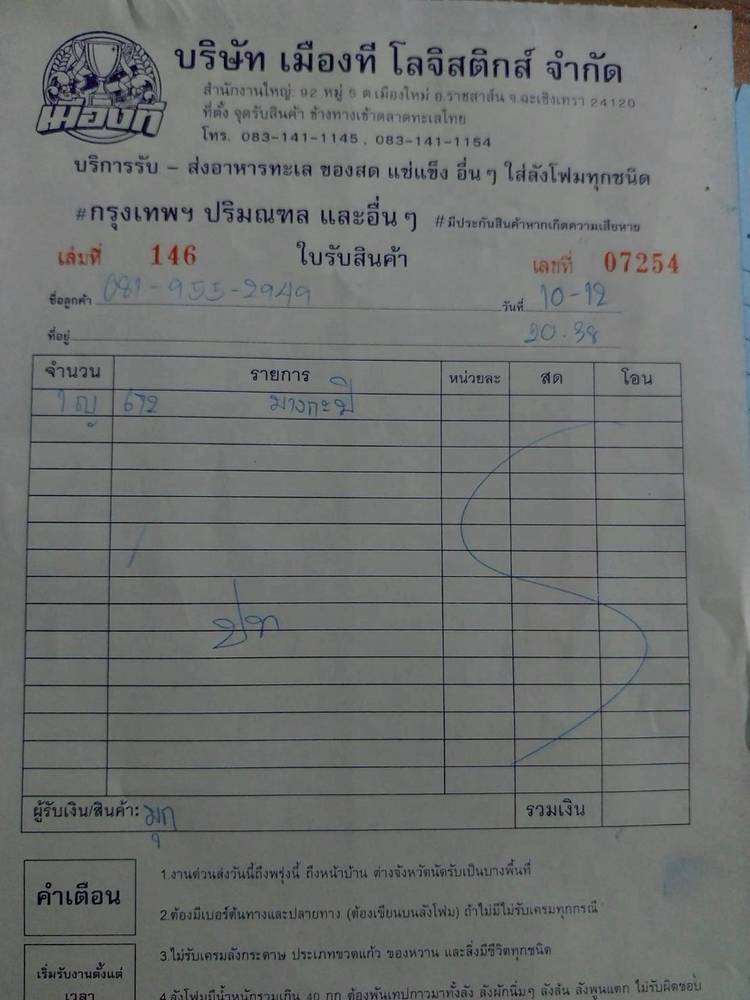 เมืองที
บริษัท เมืองที โลจิสติกส์ จำกัด
สำนักงานใหญ่: 92 หมู่ 5 ต.เมืองใหม่ อ.ราชสาส์น จ.ฉะเชิงเทรา 24120
ที่ตั้ง จุดรับสินค้า ข้างทางเข้าตลาดทะเลไทย
โทร. 083-141-1145 , 083-141-1154
บริการรับ – ส่งอาหารทะเล ของสด แช่แข็ง อื่นๆ ใส่ลังโฟมทุกชนิด
#กรุงเทพฯ ปริมณฑล และอื่นๆ #มีประกันสินค้าหากเกิดความเสียหาย
เล่มที่ 146 ใบรับสินค้า เลขที่ 07254
ชื่อลูกค้า 081-955-2949 วันที่ 10-12
ที่อยู่ 20.38
จำนวน รายการ หน่วยละ สด โอน
1 ญ 672 บางกะปิ
ปท
ผู้รับเงิน/สินค้า: มุก รวมเงิน
คำเตือน
1.งานด่วนส่งวันนี้ถึงพรุ่งนี้ ถึงหน้าบ้าน ต่างจังหวัดนัดรับเป็นบางพื้นที่
2.ต้องมีเบอร์ต้นทางและปลายทาง (ต้องเขียนบนลังโฟม) ถ้าไม่มีไม่รับเครมทุกกรณี
3.ไม่รับเครมลังกระดาษ ประเภทขวดแก้ว ของหวาน และสิ่งมีชีวิตทุกชนิด
เริ่มรับงานตั้งแต่
เวลา
4.ลังโฟมมีน้ำหนักรวมเกิน 40 กก ต้องพันเทปกาวมาทั้งลัง ลังผักนิ่มๆ ลังล้น ลังพูนแตก ไม่รับผิดชอบ